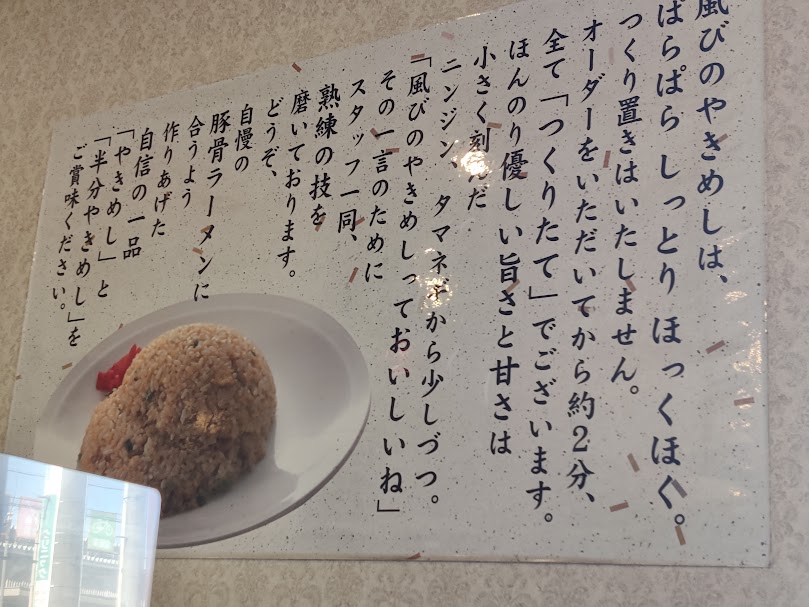 風びのやきめしは、
ぱらぱら しっとり ほっくほく。
つくり置きはいたしません。
オーダーをいただいてから約2分、
全て「つくりたて」でございます。
ほんのり優しい旨さと甘さは
小さく刻んだ
ニンジン、タマネギから少しづつ。
「風びのやきめしっておいしいね」
その一言のために
スタッフ一同、
熟練の技を
磨いております。
どうぞ、
自慢の
豚骨ラーメンに
合うよう
作りあげた
自信の一品
「やきめし」と
「半分やきめし」を
ご賞味ください。